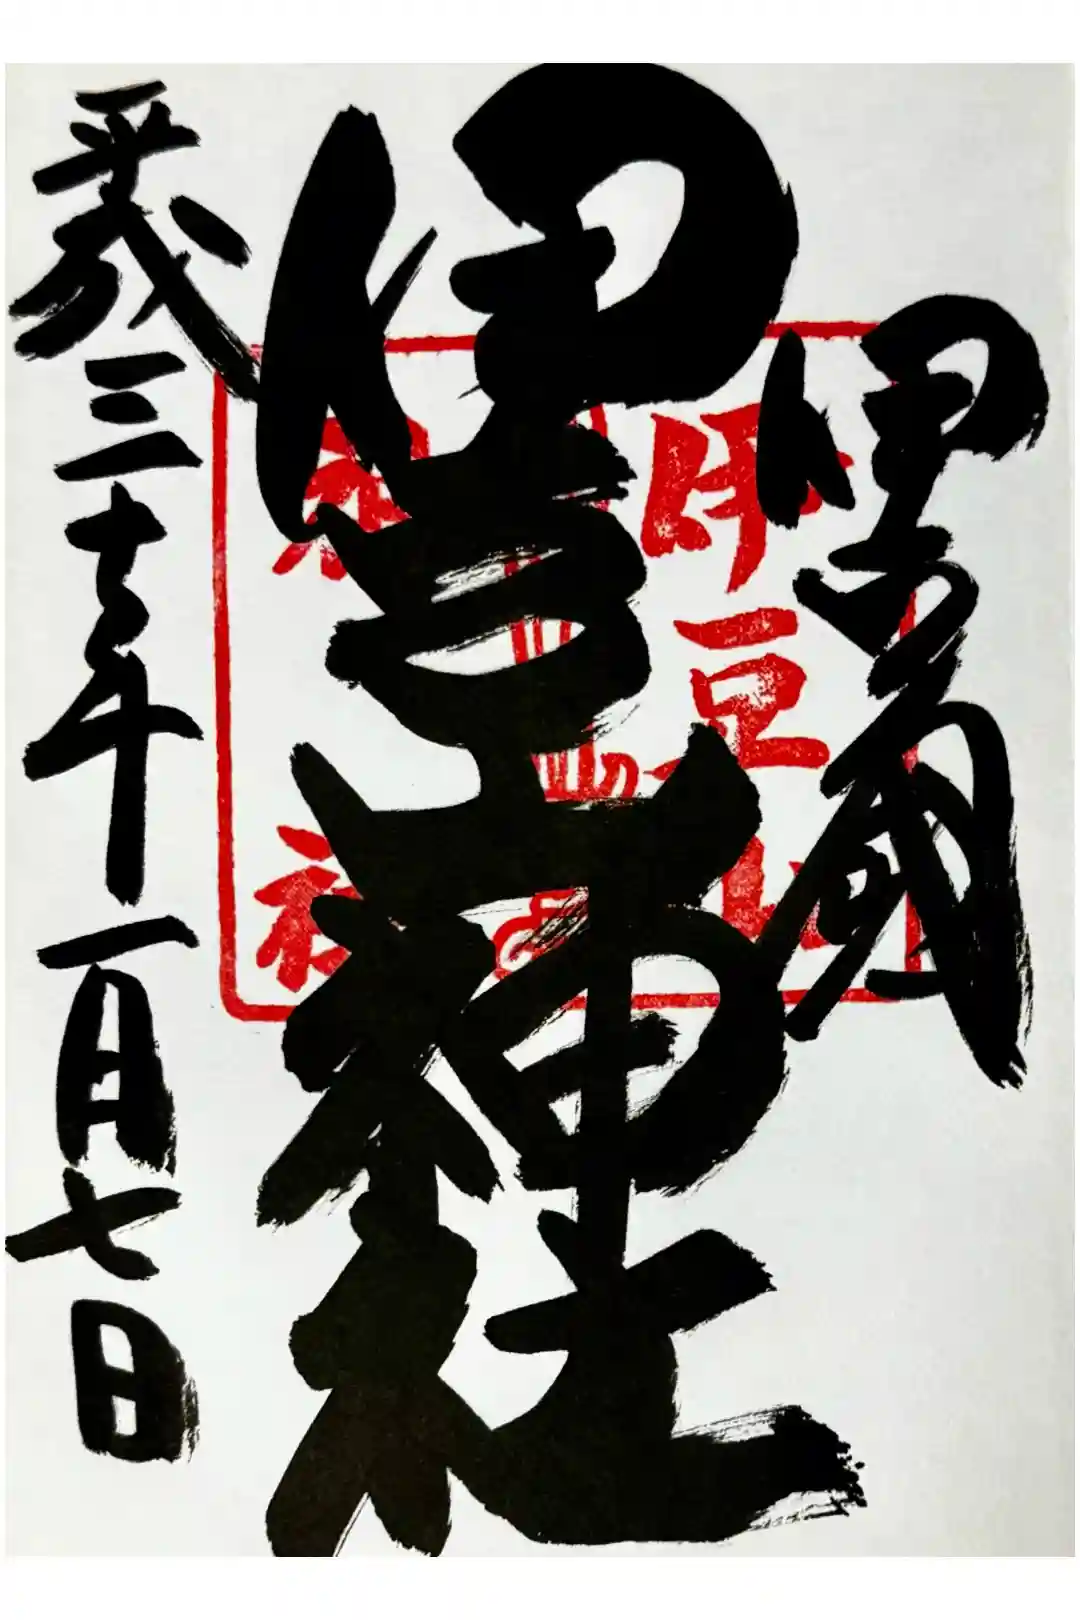 伊豆國
伊豆山神社
平成三十年一月七日
伊豆山
神社